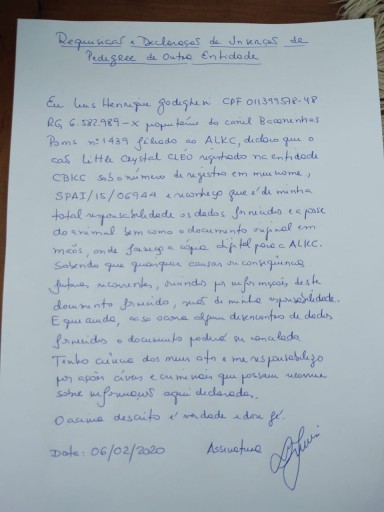 Requisição e Declaração de Inserção de
Pedigree de Outra Entidade
Eu Luis Henrique Godegheri CPF 011399578-48
RG 6.582.989-X proprietário do canil Bocoreinhas
Poms nº 1439 filiado ao ALKC, declaro que o
cão Little Crystal CLÉO registrado na entidade
CBKC sob o número de registro em meu nome,
SPAI/15/06944 e reconheço que é de minha
total responsabilidade os dados fornecidos e a posse
do animal bem como o documento original em
mãos, onde forneço a cópia digital para a ALKC.
Sabendo que quaisquer causas ou consequências
futuras recorrentes, oriundos por informações deste
documento fornecido, serão de minha responsabilidade.
E que ainda, caso ocorra algum desencontro de dados
fornecidos o documento poderá ser cancelado.
Tenho ciência dos meus atos e me responsabilizo
por ações cíveis e criminais que possam recorrer
sobre informações aqui declaradas.
O acima descrito é verdade e dou fé.
Data: 06/02/2020 Assinatura